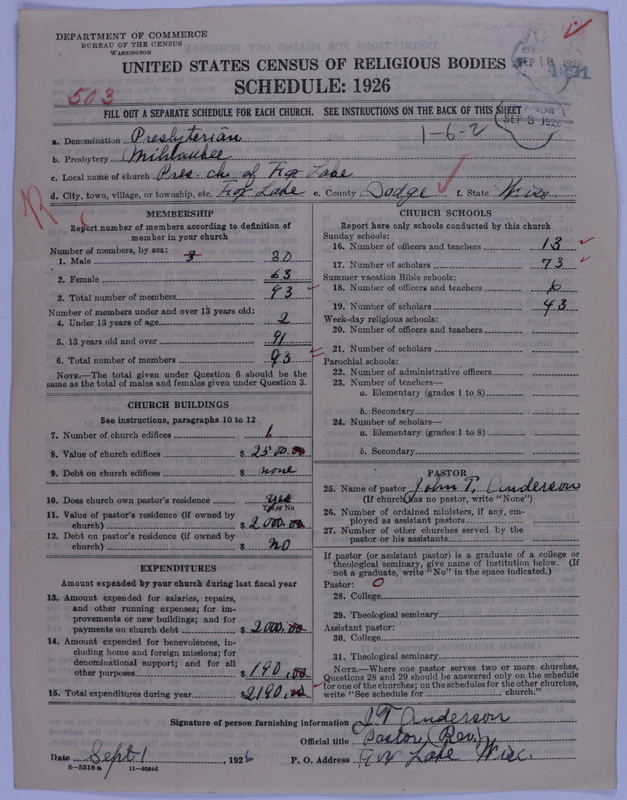 DEPARTMENT OF COMMERCE
BUREAU OF THE CENSUS
WASHINGTON
UNITED STATES CENSUS OF RELIGIOUS BODIES
SCHEDULE: 1926
503
SEP 18 1926
FILL OUT A SEPARATE SCHEDULE FOR EACH CHURCH. SEE INSTRUCTIONS ON THE BACK OF THIS SHEET
SEP 8 1926
1-6-2
a. Denomination Presbyterian
b. Presbytery Milwaukee
c. Local name of church Pres. ch. of Fox Lake
d. City, town, village, or township, etc. Fox Lake e. County Dodge f. State Wisc
MEMBERSHIP
Report number of members according to definition of
member in your church
Number of members, by sex:
1. Male 3 30
2. Female 63
3. Total number of members 93
Number of members under and over 13 years old:
4. Under 13 years of age 2
5. 13 years old and over 91
6. Total number of members 93
NOTE.—The total given under Question 6 should be the
same as the total of males and females given under Question 3.
CHURCH BUILDINGS
See instructions, paragraphs 10 to 12
7. Number of church edifices 1
8. Value of church edifices $ 2500.00
9. Debt on church edifices $ none
10. Does church own pastor's residence yes
Yes or No
11. Value of pastor's residence (if owned by
church) $ 2000.00
12. Debt on pastor's residence (if owned by
church) $ no
EXPENDITURES
Amount expended by your church during last fiscal year
13. Amount expended for salaries, repairs,
and other running expenses; for im-
provements or new buildings; and for
payments on church debt $ 2000.00
14. Amount expended for benevolences, in-
cluding home and foreign missions; for
denominational support; and for all
other purposes $ 190.00
15. Total expenditures during year $ 2190.00
CHURCH SCHOOLS
Report here only schools conducted by this church
Sunday schools:
16. Number of officers and teachers 13
17. Number of scholars 73
Summer vacation Bible schools:
18. Number of officers and teachers 6
19. Number of scholars 43
Week-day religious schools:
20. Number of officers and teachers
21. Number of scholars
Parochial schools:
22. Number of administrative officers
23. Number of teachers—
a. Elementary (grades 1 to 8)
b. Secondary
24. Number of scholars—
a. Elementary (grades 1 to 8)
b. Secondary
PASTOR
25. Name of pastor John T. Anderson
(If church has no pastor, write "None")
26. Number of ordained ministers, if any, em-
ployed as assistant pastors
27. Number of other churches served by the
pastor or his assistants
If pastor (or assistant pastor) is a graduate of a college or
theological seminary, give name of institution below. (If
not a graduate, write "No" in the space indicated.)
Pastor: 0
28. College
29. Theological seminary
Assistant pastor:
30. College
31. Theological seminary
NOTE.—Where one pastor serves two or more churches,
Questions 28 and 29 should be answered only on the schedule
for one of the churches; on the schedules for the other churches,
write "See schedule for church."
Signature of person furnishing information J T Anderson
Official title Pastor (Rev)
Date Sept 1, 1926 P. O. Address Fox Lake Wisc.
8—5518a 11—9054d